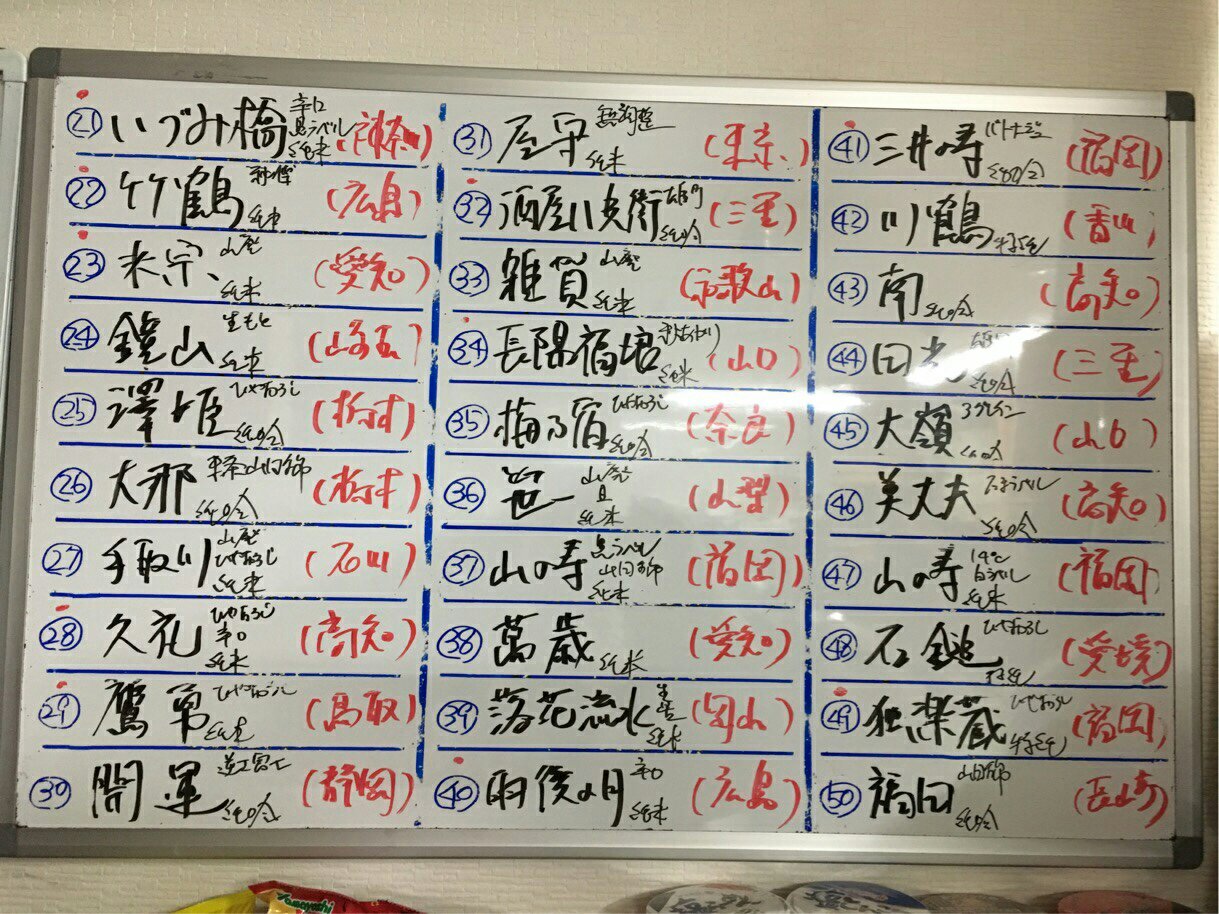 ㉑ いづみ橋 辛口 黒ラベル 純米 (神奈川)
㉒ 竹鶴 純米 (広島)
㉓ 米宗 山廃 純米 (愛知)
㉔ 鏡山 生もと 純米 (埼玉)
㉕ 澤姫 ひやおろし 純吟 (栃木)
㉖ 大那 純吟 (栃木)
㉗ 手取川 山廃 ひやおろし 純米 (石川)
㉘ 久礼 ひやおろし 辛口 純米 (高知)
㉙ 鷹勇 ひやおろし 純米 (鳥取)
㉚ 開運 純吟 (静岡)
㉛ 屋守 無調整 純米 (東京)
㉜ 酒屋八兵衛 純吟 (三重)
㉝ 雑賀 山廃 純米 (和歌山)
㉞ 長陽福娘 純米 (山口)
㉟ 梅乃宿 ひやおろし 純吟 (奈良)
㊱ 笹一 山廃 旦 純米 (山梨)
㊲ 山の寿 山田錦 純米 (福岡)
㊳ 萬歳 純米 (愛知)
㊴ 落花流水 純米 (岡山)
㊵ 雨後の月 辛口 純米 (広島)
㊶ 三井の寿 純吟 (福岡)
㊷ 川鶴 特純 (香川)
㊸ 南 純吟 (高知)
㊹ 田光 純吟 (三重)
㊺ 大嶺 3グレイン 純吟 (山口)
㊻ 美丈夫 純吟 (高知)
㊼ 山の寿 14℃ 白ラベル 純米 (福岡)
㊽ 石鎚 ひやおろし 特純 (愛媛)
㊾ 独楽蔵 ひやおろし 特純 (福岡)
㊿ 福田 山田錦 純吟 (長崎)
Yamayoshi